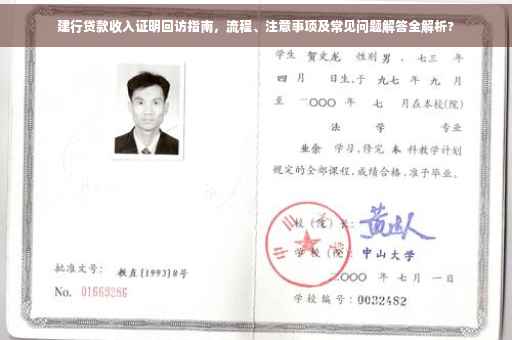 建行贷款收入证明回访指南，流程、注意事项及常见问题解答全解析?
学生 贺文龙 性别 男 、七三 年
四 月 日生,于 九七 年 九 月
至 二000 年 七 月在本校(院)
法 学 专业
业余 学习,修完 本 科教学计划
规定的全部课程,成绩合格,准予毕业。
校 (院) 长:
学 校 (院): 中山大学
二000 年 七 月 一 日
学校编号: 0032482
批准文号: 教直(1993)8号
No. 01669286